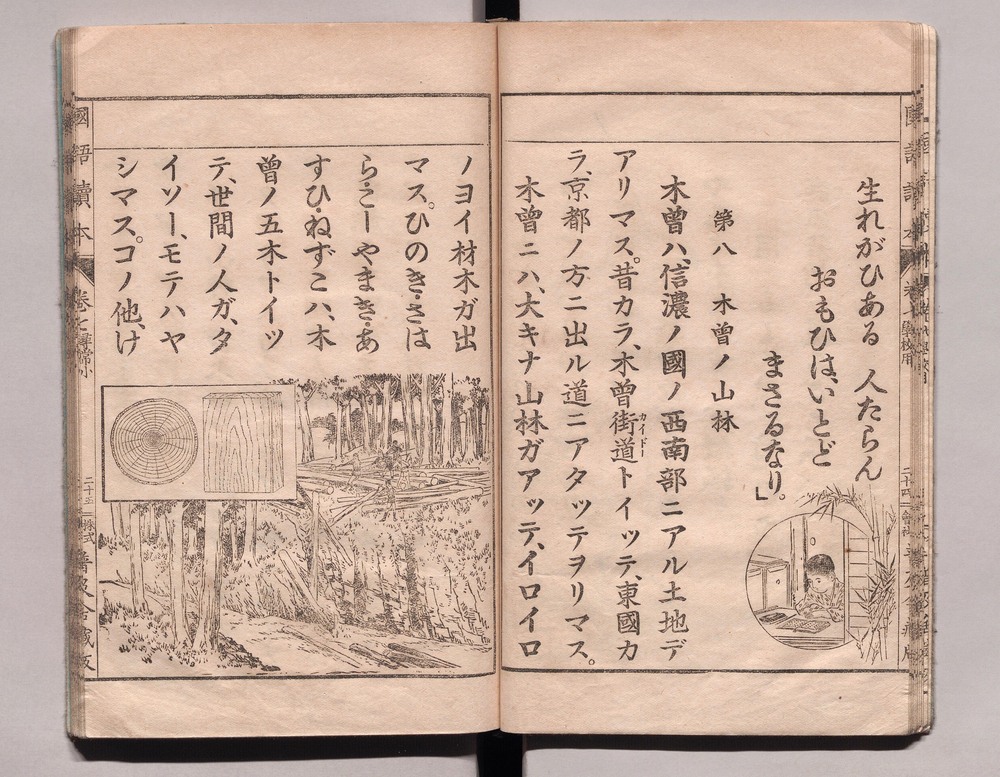 生れがひある 人たらん
おもひは、いとど
まさるなり。」
第八 木曾ノ山林
木曾ハ、信濃ノ國ノ西南部ニアル土地デ
アリマス。昔カラ、木曾街道トイッテ、東國カ
カイドー
ラ、京都ノ方ニ出ル道ニアタッテヲリマス。
木曾ニハ、大キナ山林ガアッテ、イロイロ
ノヨイ材木ガ出
マス。ひのき・さは
ら・こーやまき・あ
すひ・ねずこハ、木
曾ノ五木トイッ
テ、世間ノ人ガ、タ
イソー、モテハヤ
シマス。コノ他、け
國語讀本 卷七 尋常小
二十五